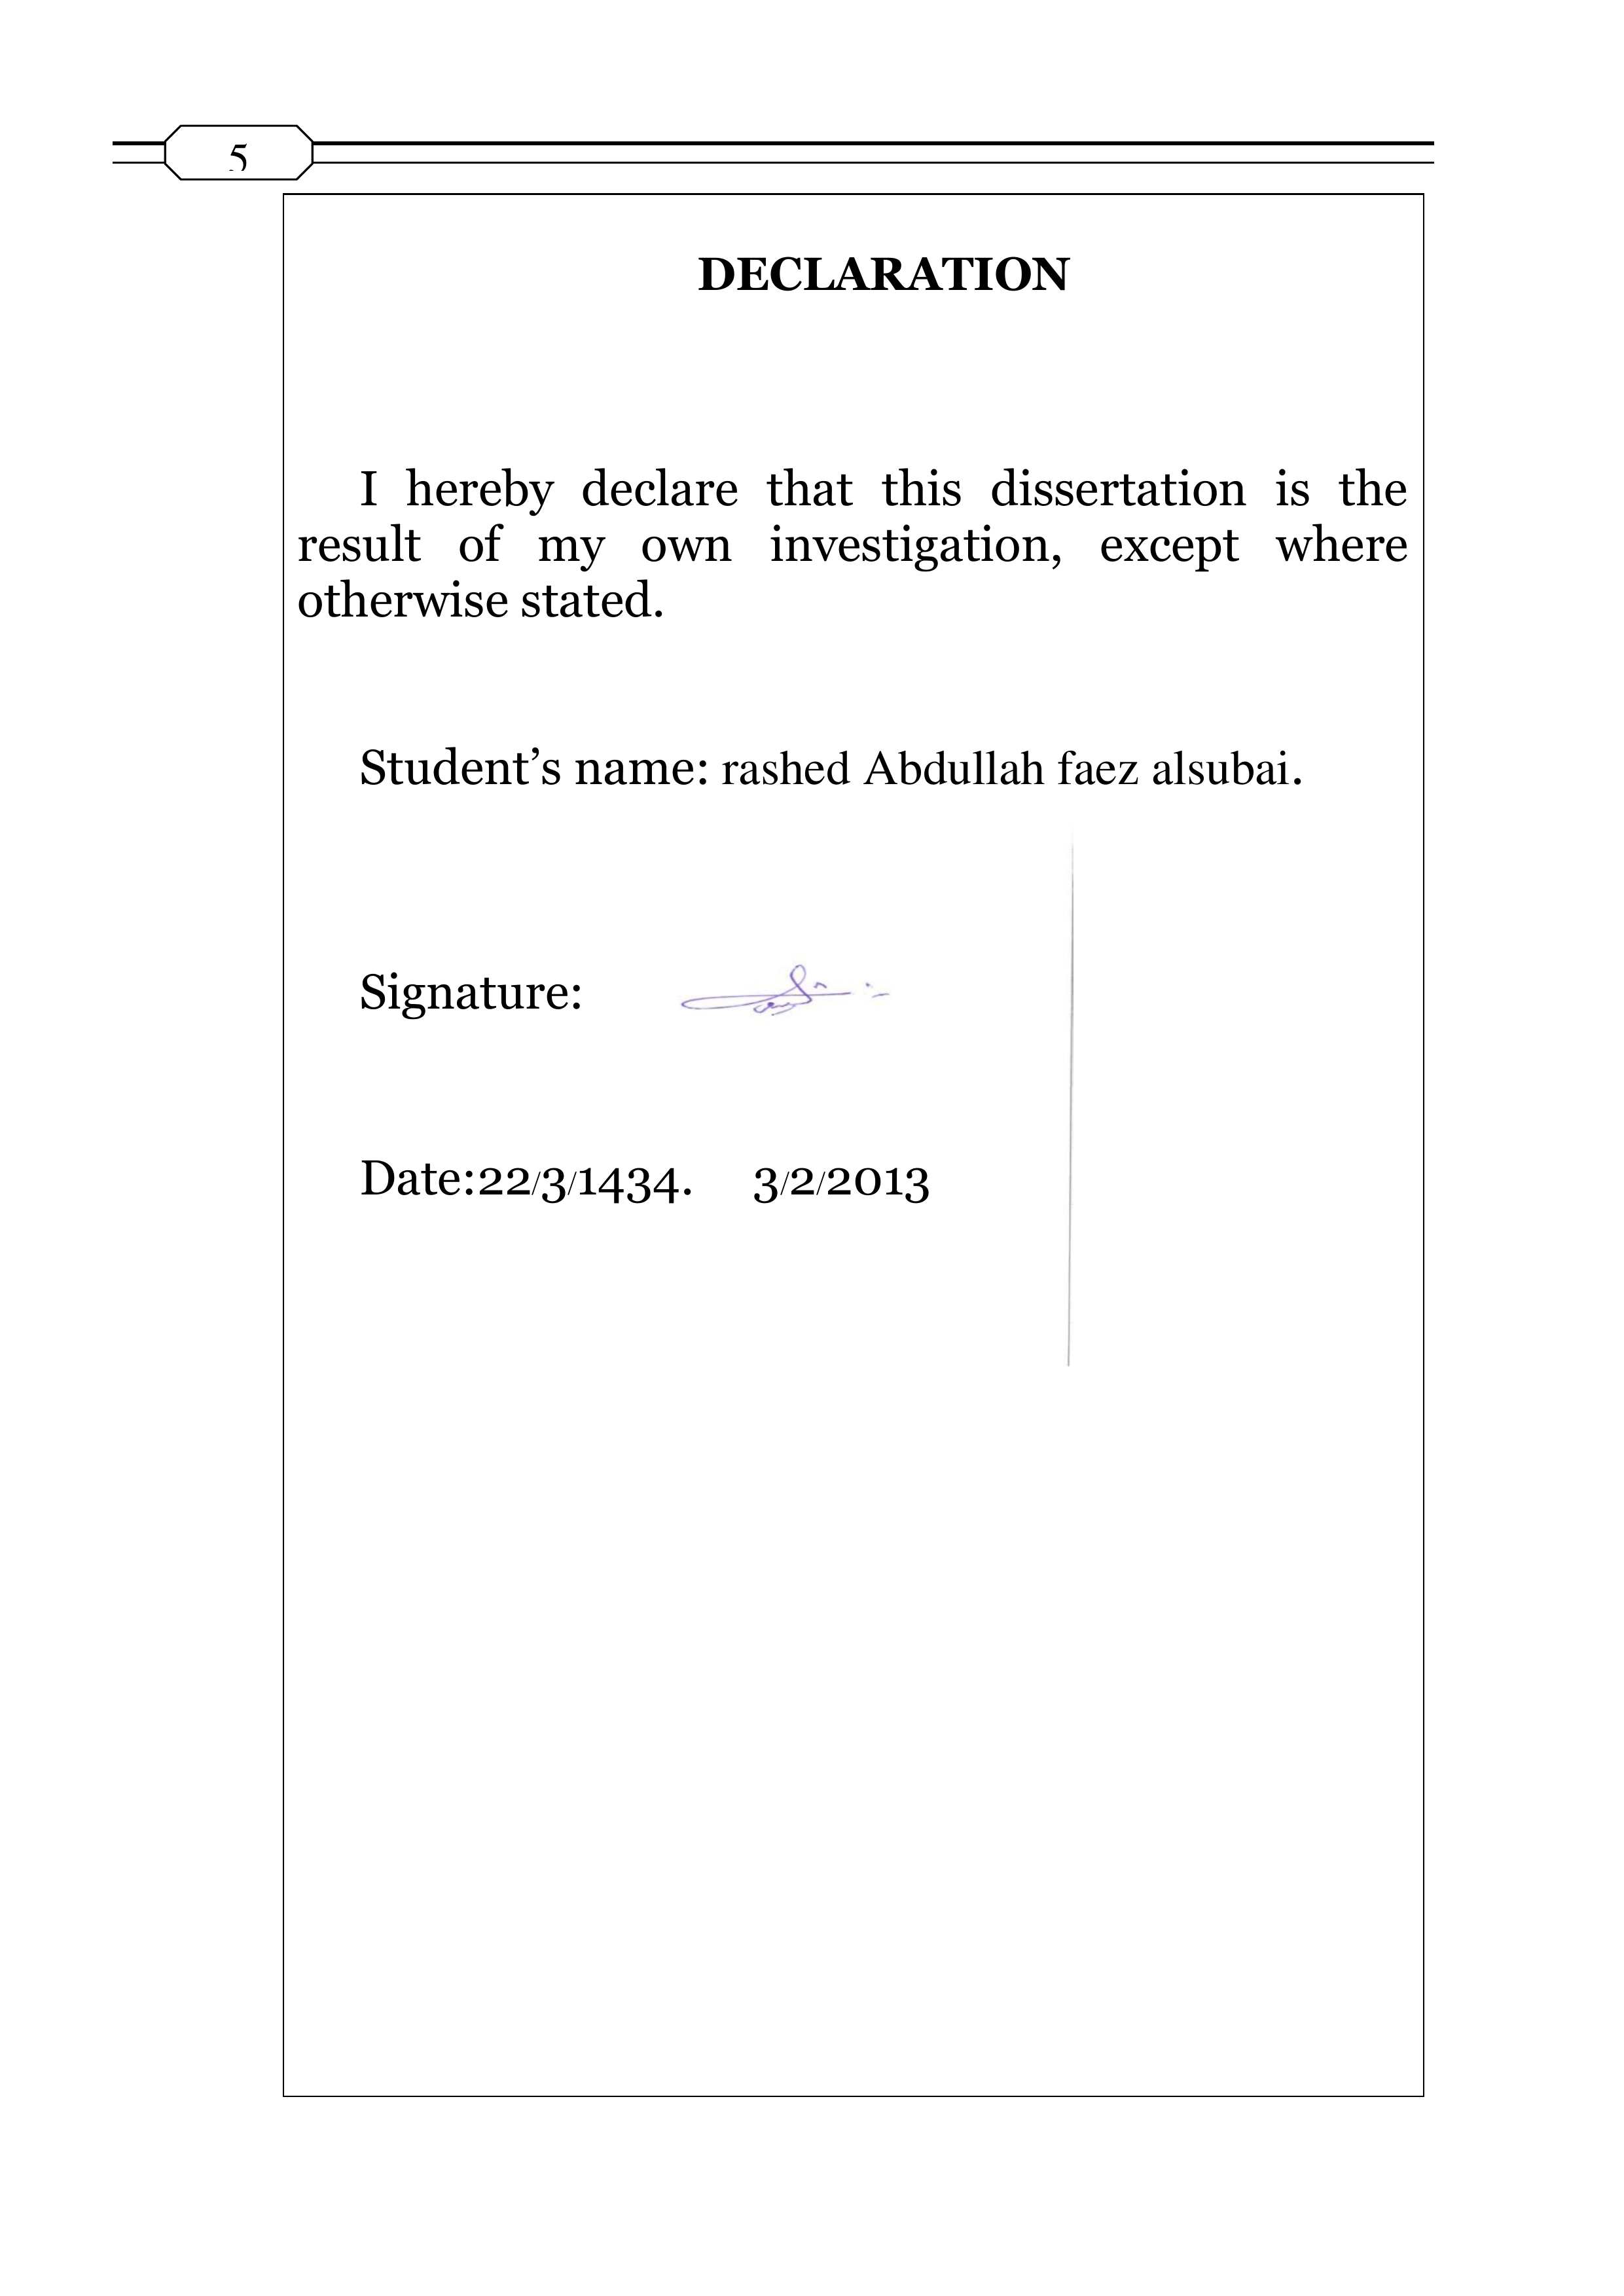 5
DECLARATION
I hereby declare that this dissertation is the
result of my own investigation, except where
otherwise stated.
Student’s name: rashed Abdullah faez alsubai.
Signature:
Date:22/3/1434. 3/2/2013